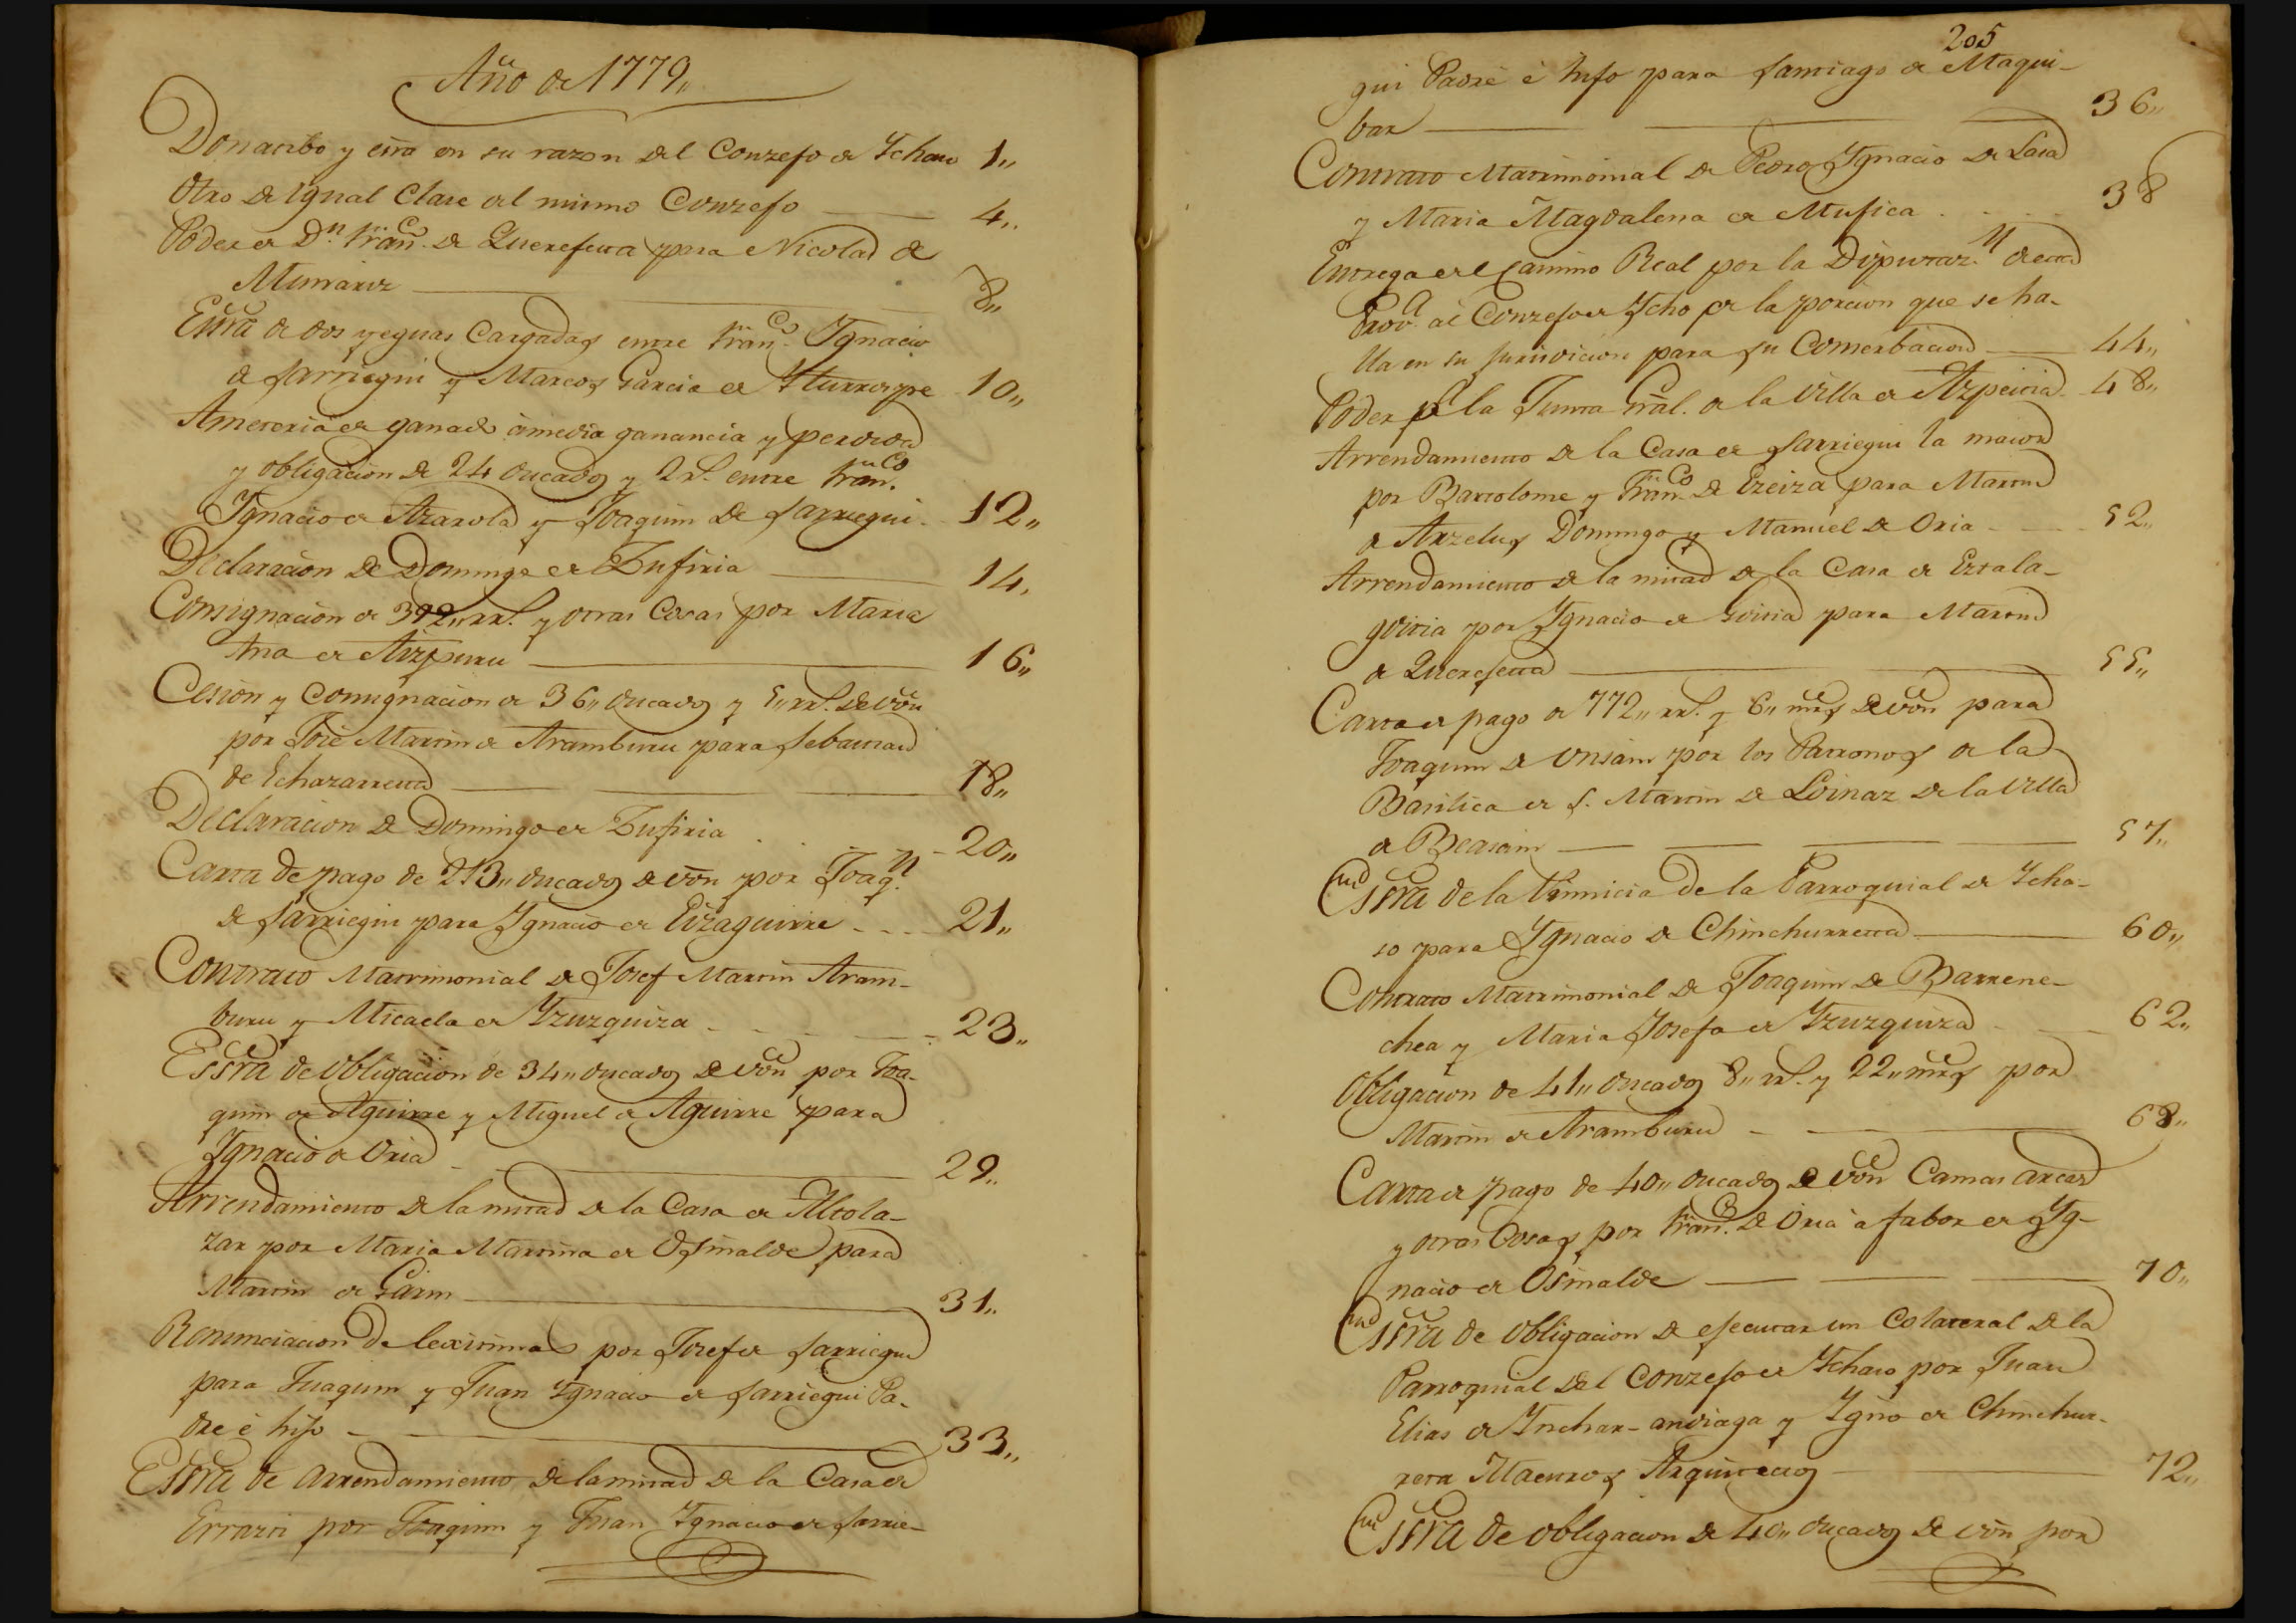 Año de 1779,,
Donatibo y esra en su razon del Conzejo de Ychaso 1,,
Otro de igual Clase del mismo Conzejo 4,,
Poder de Dn. Franco. de Querejeta para Nicolas de
Munariz 8,,
Essra de dos yeguas Cargadas entre Franco. Ygnacio
de Sarriegui y Marcos Garcia de Yturrospe 10,,
Ameteria de ganado à media ganancia y perdida
y obligacion de 24 ducados y 2 rs. entre Franco.
Ygnacio de Azarola y Joaquin de Sarriegui 12,,
Declaracion de Domingo de Zufiria 14,
Consignacion de 392,, rrs. y otras Cosas por Maria
Ana de Aizpuru 16,,
Cesion y Consignacion de 36,, ducados y 5,, rrs. de von
por Jose Martin de Aramburu para Sebastian
de Echazarreta 18,,
Declaracion de Domingo de Zufiria 20,,
Carta de pago de 213,, ducados de von por Joaqn.
de Sarriegui para Ygnacio de Eizaguirre 21,,
Contrato Matrimonial de Josef Martin Aram-
buru y Micaela de Yzuzquiza 23,,
Essra de obligacion de 34,, ducados de von por Joa-
quin de Aguirre y Miguel de Aguirre para
Ygnacio de Oria 29,,
Arrendamiento de la mitad de la Casa de Altola-
zar por Maria Martina de Osinalde para
Martin de Garin 31,,
Renunciacion de lexitimas por Josef de Sarriegui
para Juaquin y Juan Ygnacio de Sarriegui Pa-
dre è hijo 33,,
Essra de arrendamiento de la mitad de la Casa de
Errazti por Joaquin y Juan Ygnacio de Sarrie-
205
gui Padre è hijo para Santiago de Maqui-
bar 36,,
Contrato Matrimonial de Pedro Ygnacio de Lasa
y Maria Magdalena de Mujica 38
Entrega del Camino Real por la Diputazn. de esta
Prova. al Conzejo de Ycho de la porcion que se ha-
lla en su jurisdicion para su Conserbacion 44,,
Poder pa la Junta Gral. de la Villa de Azpeitia 48,,
Arrendamiento de la Casa de Sarriegui la maior
por Bartolome y Franco. de Ezeiza para Martin
de Arzelus Domingo y Manuel de Oria 52,,
Arrendamiento de la mitad de la Casa de Estala-
goitia por Ygnacio de Goitia para Martin
de Querejeta 55,,
Carta de pago de 772,, rrs. y 6,, mrs de von para
Joaquin de Unsain por los Patronos de la
Basilica de S. Martin de Loinaz de la Villa
de Beasain 57,,
Essra de la Primicia de la Parroquial de Ycha-
so para Ygnacio de Chinchurreta 60,,
Contrato Matrimonial de Joaquin de Barrene-
chea y Maria Josefa de Yzuzquiza 62,,
Obligacion de 41,, ducados 8,, rrs. y 22,, mrs por
Martin de Aramburu 68,,
Carta de pago de 40,, ducados de von Camas arcas
y otras Cosas por Franco. de Oria à fabor de Yg-
nacio de Osinalde 70,,
Essra de obligacion de ejecutar un Colateral de la
Parroquial del Conzejo de Ychaso por Juan
Elias de Ynchar-andiaga y Ygno de Chinchur-
reta Maestros Arquitectos 72,,
Essra de obligacion de 40,, ducados de von por